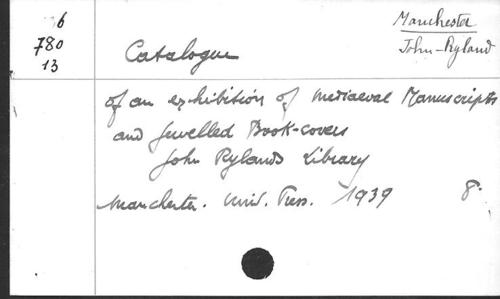 6
780
13
Manchester
John-Ryland
Catalogue
of an exhibition of Mediaeval Manuscripts
and Jewelled Book-covers
John Rylands Library
Manchester. Univ. Press. 1939 8°